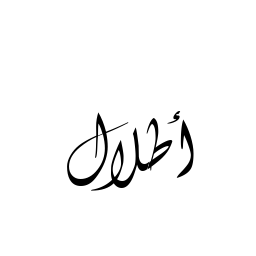 أطلال